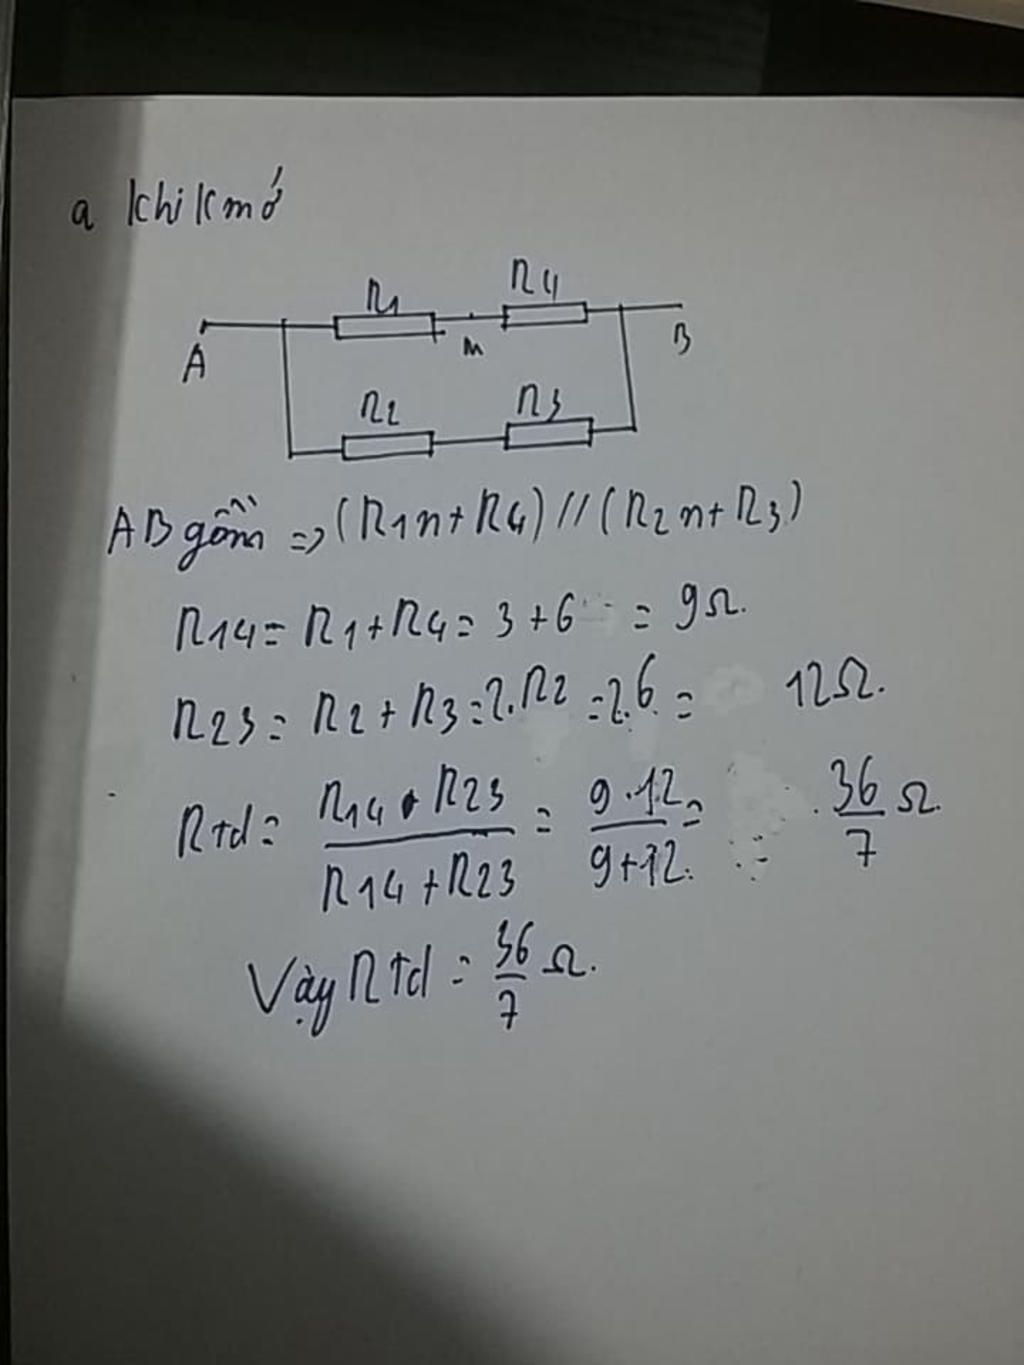 a khi K mở
R1 R4
A M B
R2 R3
AB gồm => (R1 nt R4) // (R2 nt R3)
R14 = R1 + R4 = 3 + 6 = 9Ω.
R23 = R2 + R3 = 2.R2 = 2.6 = 12Ω.
Rtd = R14 . R23 / R14 + R23 = 9.12 / 9+12 = 36/7 Ω
Vậy Rtd = 36/7 Ω.